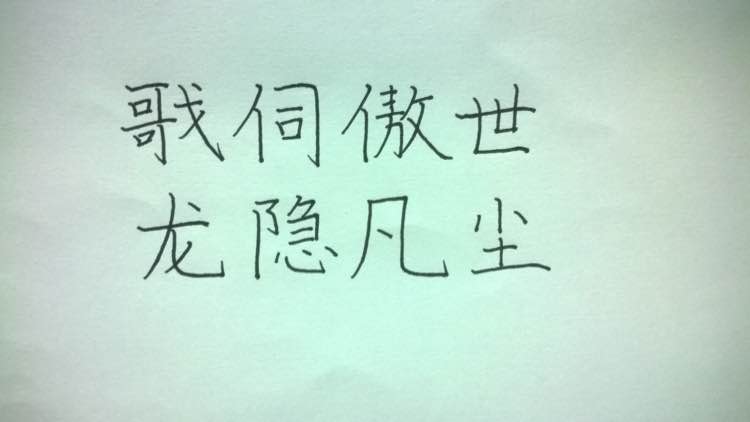 戨伺傲世
龙隐凡尘